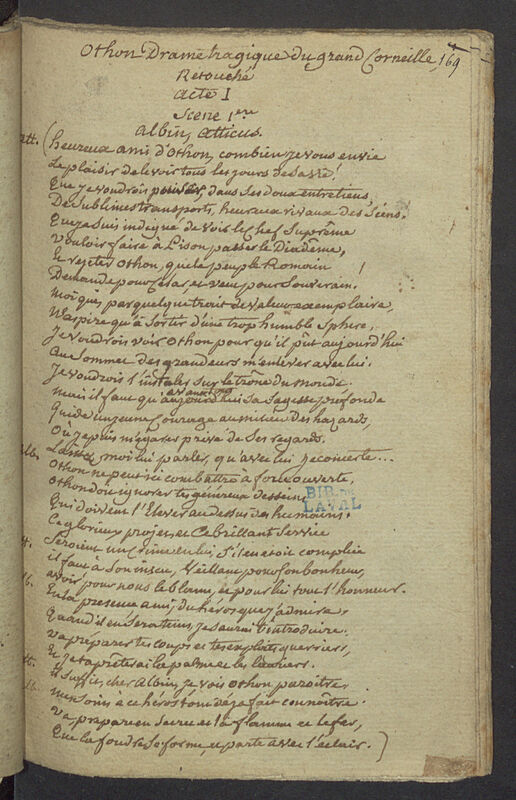 Othon Drame tragique du grand Corneille, 169
Retouché
Acte I
Scene 1ere
Albin, Atticus.
att. (heureux ami d'Othon, combien je vous envie
Le plaisir de le voir tous les jours de sa vie!
Que je voudrois puiser, dans ses doux entretiens,
De Sublimes transports, heureux rivaux des Siens.
Que je suis indigné de voir le Chef Suprême
Vouloir faire à Pison passer le Diadême,
Et rejetter Othon, que le peuple Romain
Demande pour Cesar, et veut pour Souverain.
Moi qui, par quelque trait de valeur exemplaire,
N'aspire qu'à Sortir d'une trop humble Sphere,
Je voudrois voir Othon pour qu'il pût aujourd'hui
Au Sommet des grandeurs m'enlever avec lui.
Je voudrois l'instaler Sur le trône du monde.
Mais il faut qu'avant Sa Sagesse profonde
Guide un jeune Courage au milieu des hazards,
Où je puis m'égarer privé de Ses regards.
alb. Laisse moi lui parler, qu'avec lui je concerte...
Othon ne peut ici combattre à force ouverte,
Othon doit ignorer tes généreux desseins
Qui doivent l'Elever au dessus des humains.
Ce glorieux projet, et Ce brillant Service
Seroient un Crime en lui, S'il en etoit complice
il faut à Son insçu, Veillant pour Son bonheur,
avoir, pour nous le blame, et pour lui tout l'honneur.
En la presence ami, du héros que j'admire,
Quand il en Sera tems, je Saurai t'introduire.
Va préparer tes coups et tes exploits guerriers,
Et je t'aprêterai la palme et les lauriers.
il Suffit, cher Albin, je vois Othon paroître
mes Soins à ce héros t'ont déja fait connoître.
Va, prepare en Secret et la flamme et le fer,
Que la foudre Se forme, et parte avec l'éclair. )
BIB. DE
LAVAL